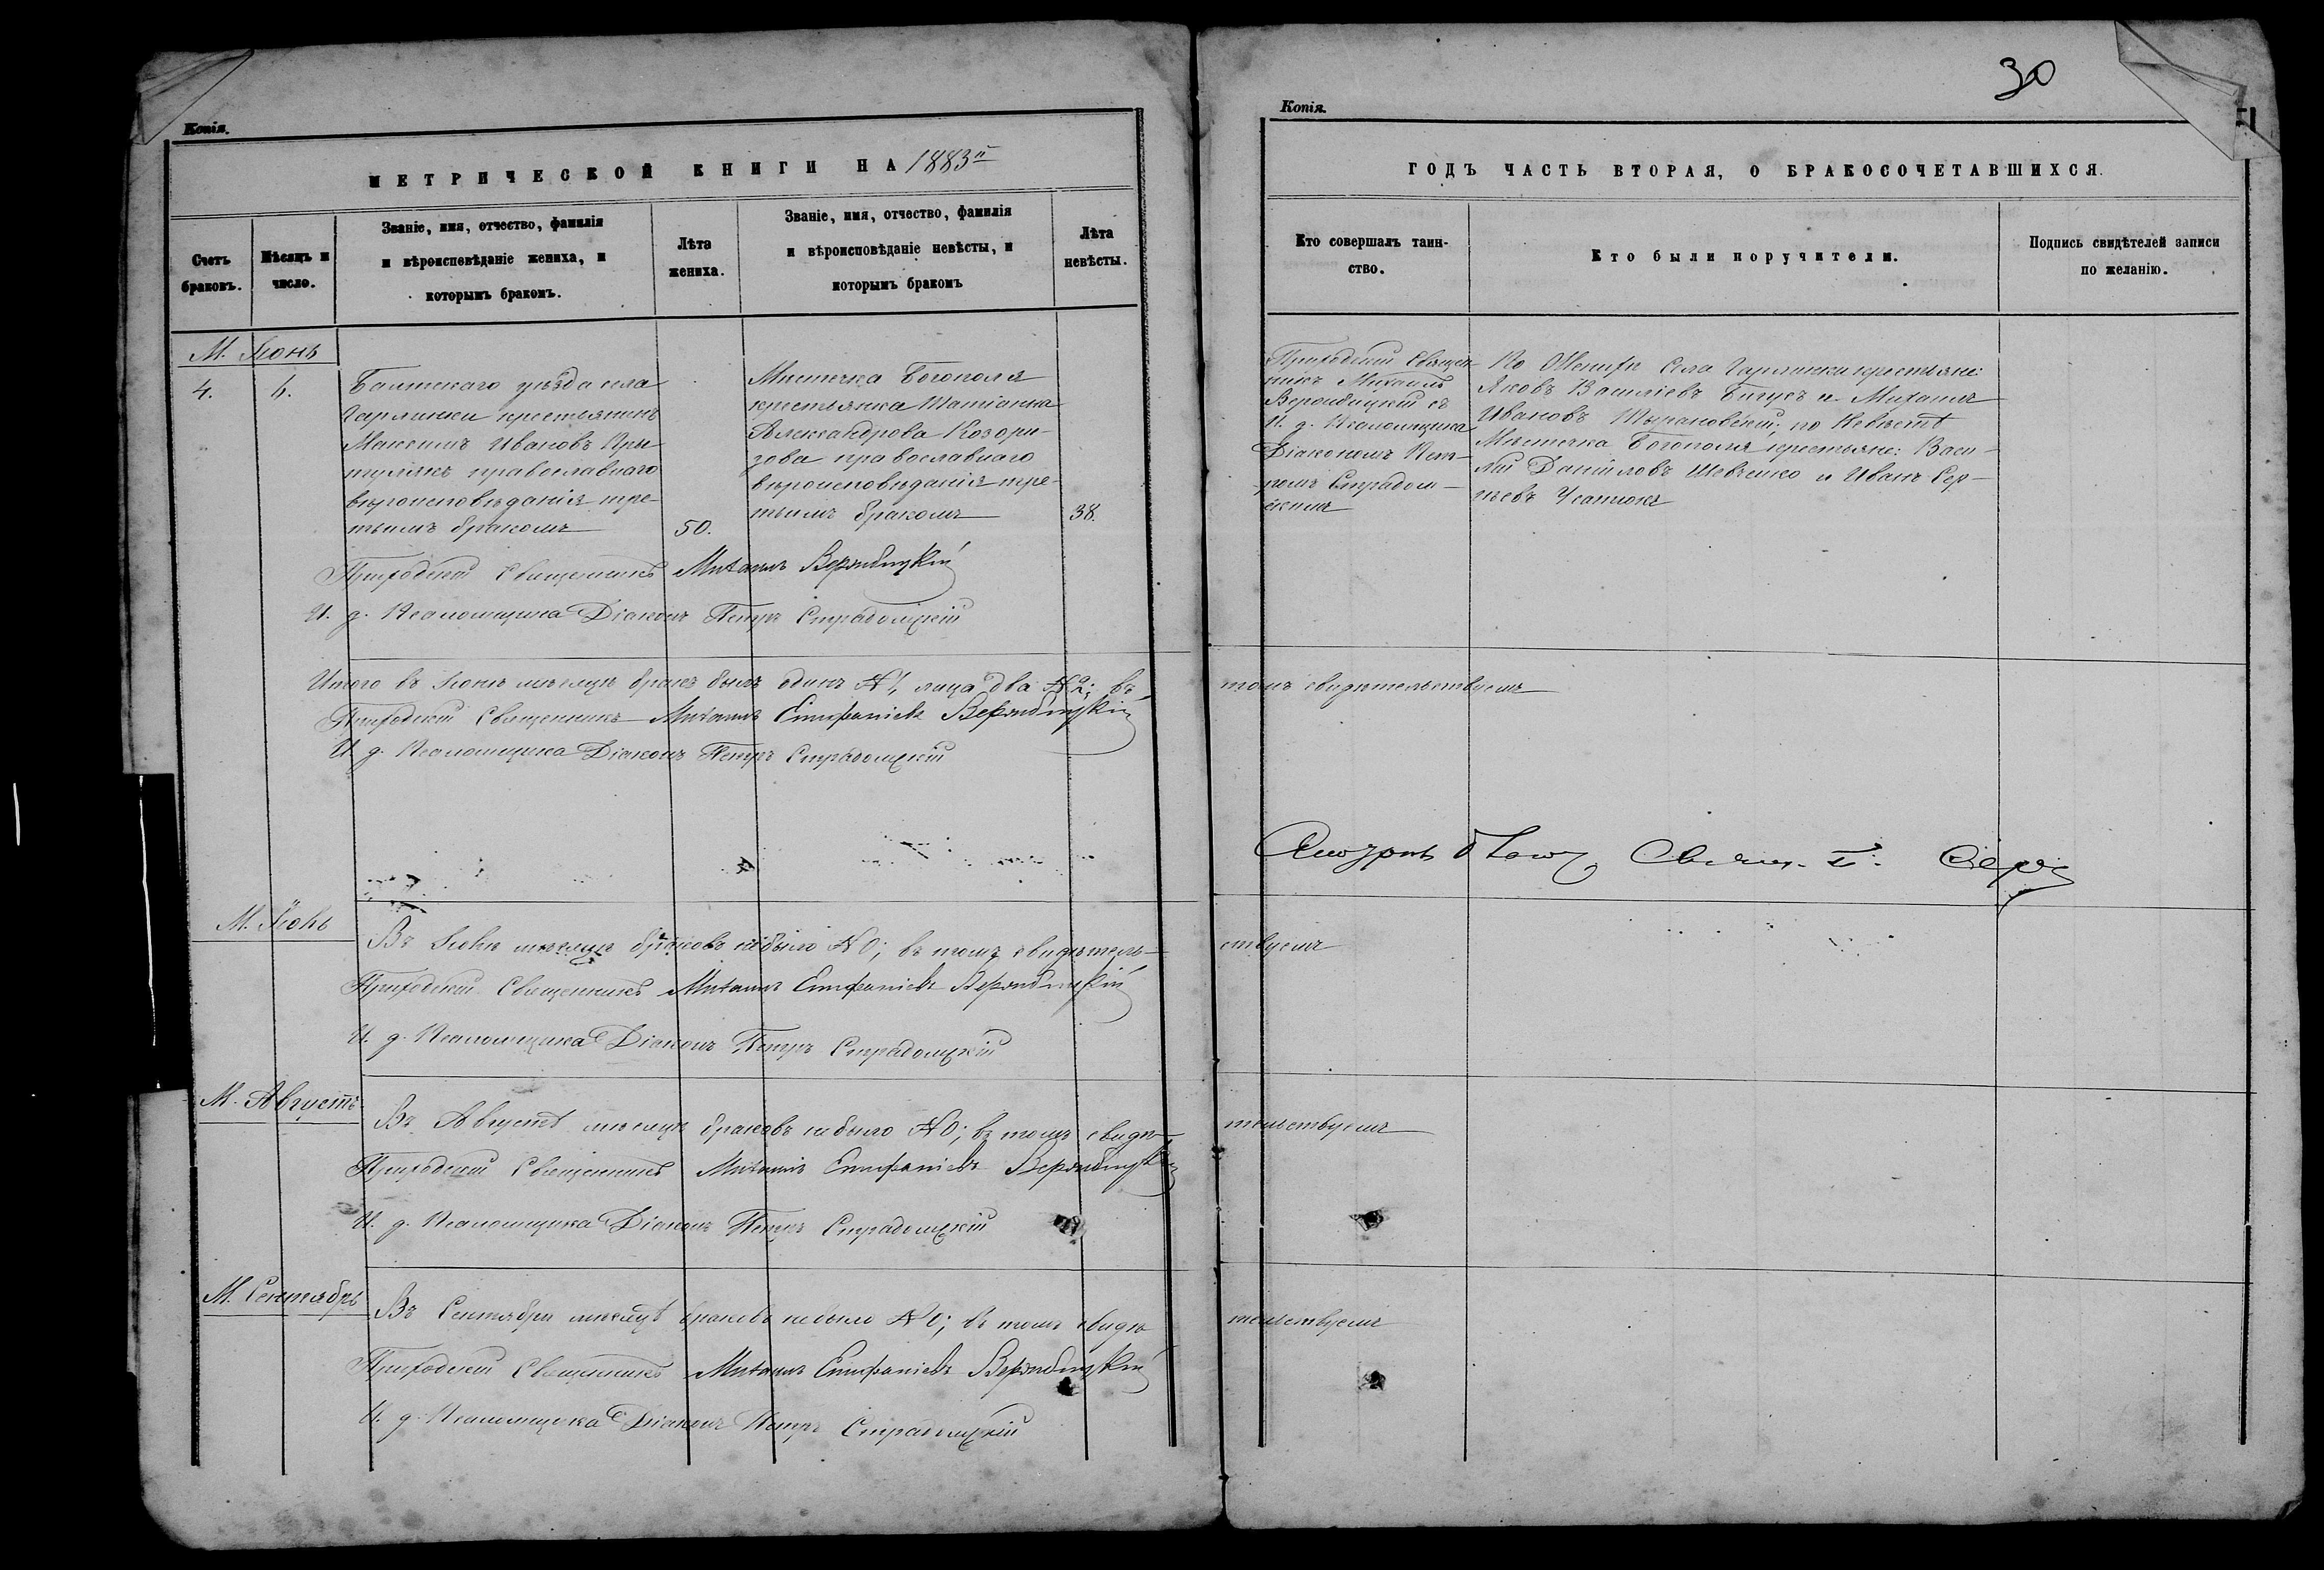 30
Копія.
Копія.
МЕТРИЧЕСКОЙ КНИГИ НА 1883й
ГОДЪ ЧАСТЬ ВТОРАЯ, О БРАКОСОЧЕТАВШИХСЯ.
Счетъ браковъ.
Мѣсяцъ и число.
Званіе, имя, отчество, фамилія
и вѣроисповѣданіе жениха, и
которымъ бракомъ.
Лѣта
жениха.
Званіе, имя, отчество, фамилія
и вѣроисповѣданіе невѣсты, и
которымъ бракомъ
Лѣта
невѣсты.
Кто совершалъ таин-
ство.
Кто были поручители.
Подпись свидѣтелей записи
по желанію.
М. Іюнь
4.
6.
Балтскаго уѣзда села
крестьянинъ
Максимъ Ивановъ
православнаго
вѣроисповѣданія тре-
тьимъ бракомъ
50.
Мѣстечка Богополя
крестьянка Татіанна
Александрова Козори-
зова православнаго
вѣроисповѣданія тре-
тьимъ бракомъ
38.
Приходскій Священ-
никъ Михаилъ
Вержбицкій съ
И. д. Псаломщика
Діакономъ Пет-
ромъ Страдом-
скимъ
По Женихѣ Села крестьяне:
Яковъ Василіевъ Бигусъ и Михаилъ
Ивановъ Тырановскій; по Невѣстѣ
Мѣстечка Богополя крестьяне: Васи-
лій Даніиловъ Шевченко и Иванъ Сер-
гѣевъ Усатюкъ
Приходскій Священникъ Михаилъ Вержбицкій
И. д. Псаломщика Діаконъ Петръ Страдомскій
Итого въ Іюнѣ мѣсяцѣ бракъ былъ одинъ №1, лица два №2; въ томъ свидѣтельствуемъ
Приходскій Священникъ Михаилъ Епифаніевъ Вержбицкій
И. д. Псаломщика Діаконъ Петръ Страдомскій
М. Іюль
Въ Іюлѣ мѣсяцѣ браковъ небыло №0; въ томъ свидѣтель-
ствуемъ
Приходскій Священникъ Михаилъ Епифаніевъ Вержбицкій
И. д. Псаломщика Діаконъ Петръ Страдомскій
М. Августъ
Въ Августѣ мѣсяцѣ браковъ небыло №0; въ томъ свидѣ-
тельствуемъ
Приходскій Священникъ Михаилъ Епифаніевъ Вержбицкій
И. д. Псаломщика Діаконъ Петръ Страдомскій
М. Сентябрь
Въ Сентябрѣ мѣсяцѣ браковъ небыло №0; въ томъ свидѣ-
тельствуемъ
Приходскій Священникъ Михаилъ Епифаніевъ Вержбицкій
И. д. Псаломщика Діаконъ Петръ Страдомскій